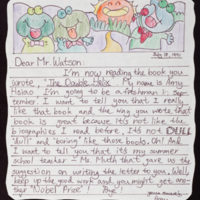 July 18, 1996
Dear Mr. Watson:
I'm now reading the book you
wrote, "The Double Helix". My name is Amy
Hsiao. I'm going to be a
tember. I want to tell you that I really
like that book and the way you wrote that
book is great because it's not like the
biographies I read before, It's not DULL
"dull" and "boring" like those books. Oh! And
I want to tell you that it's my summer
school teacher - Ms. Muth that gave us the
suggestion on writing the letter to you. Well,
keep up the good work and you might get ano-
ther "Nobel Prize"!